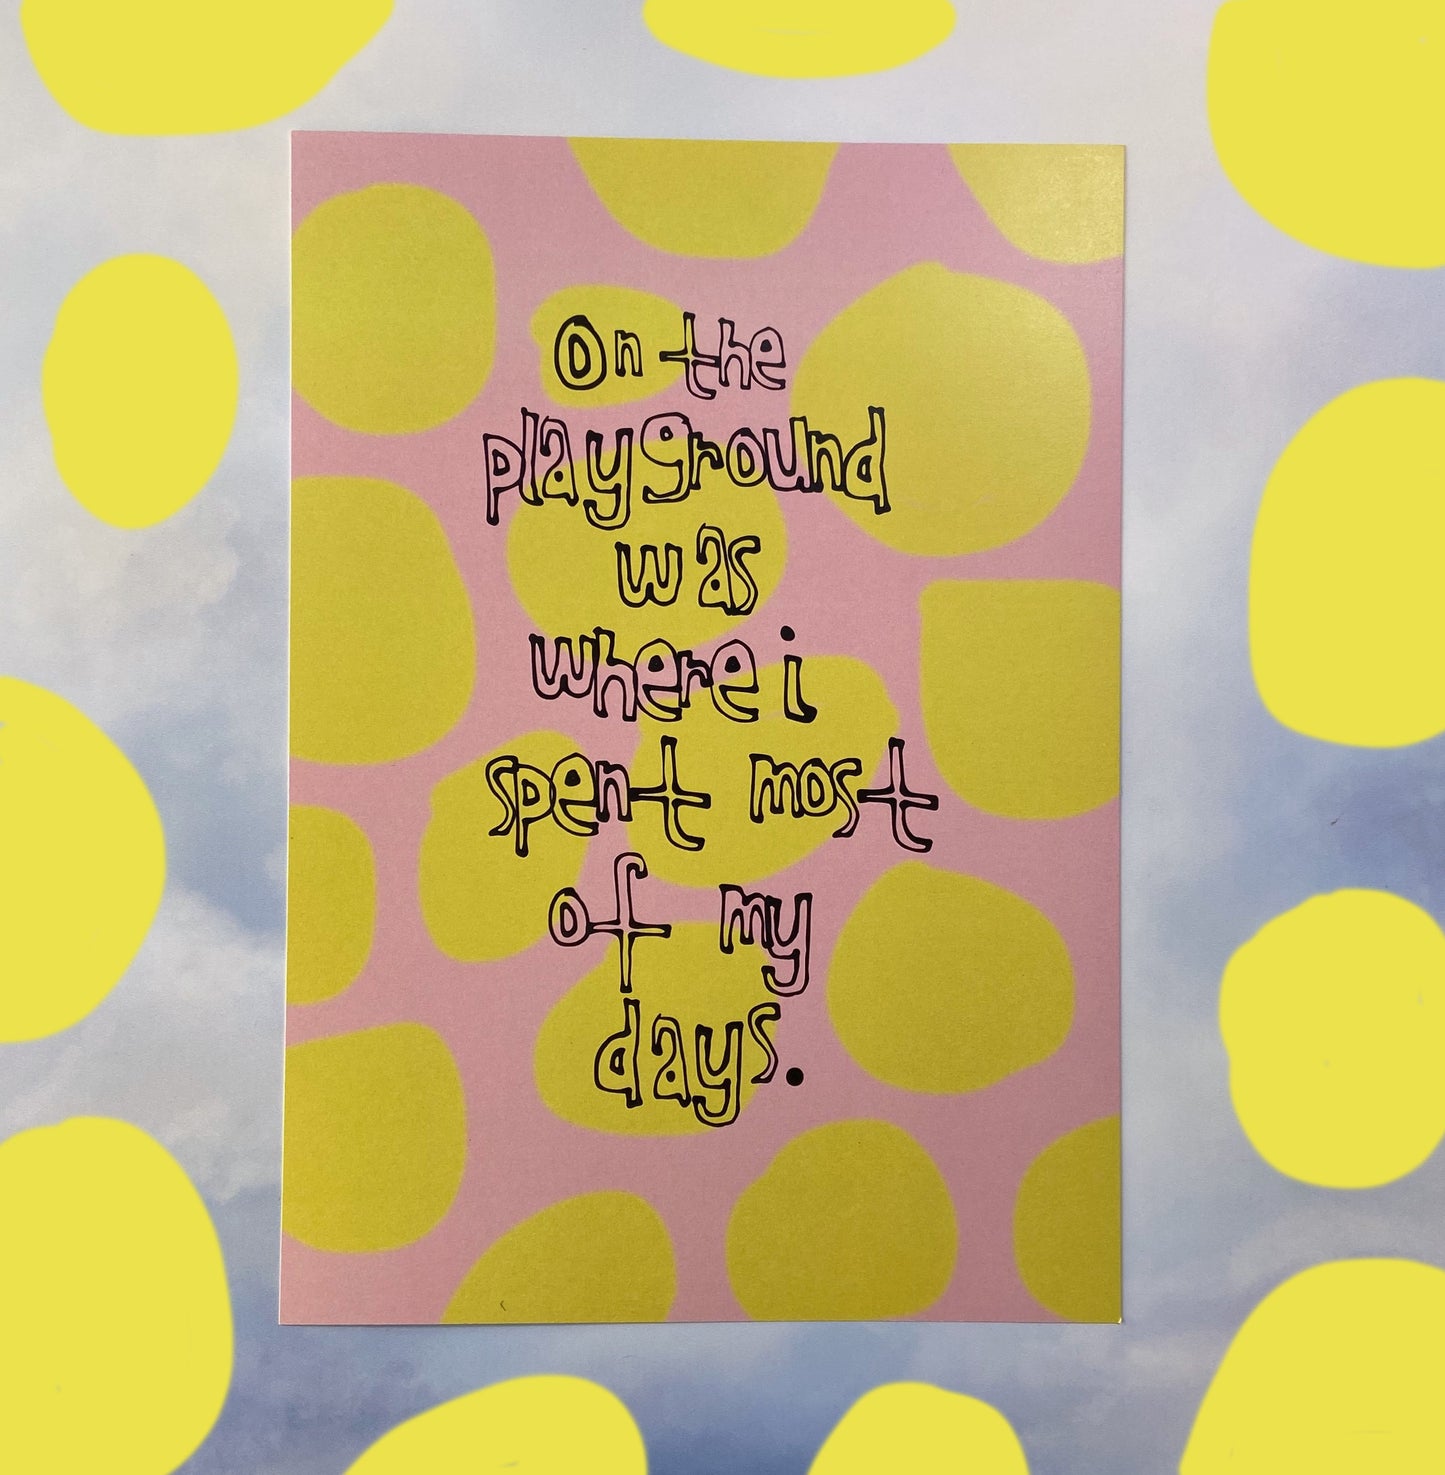 On the
playground
was
where i
spent most
of my
days.